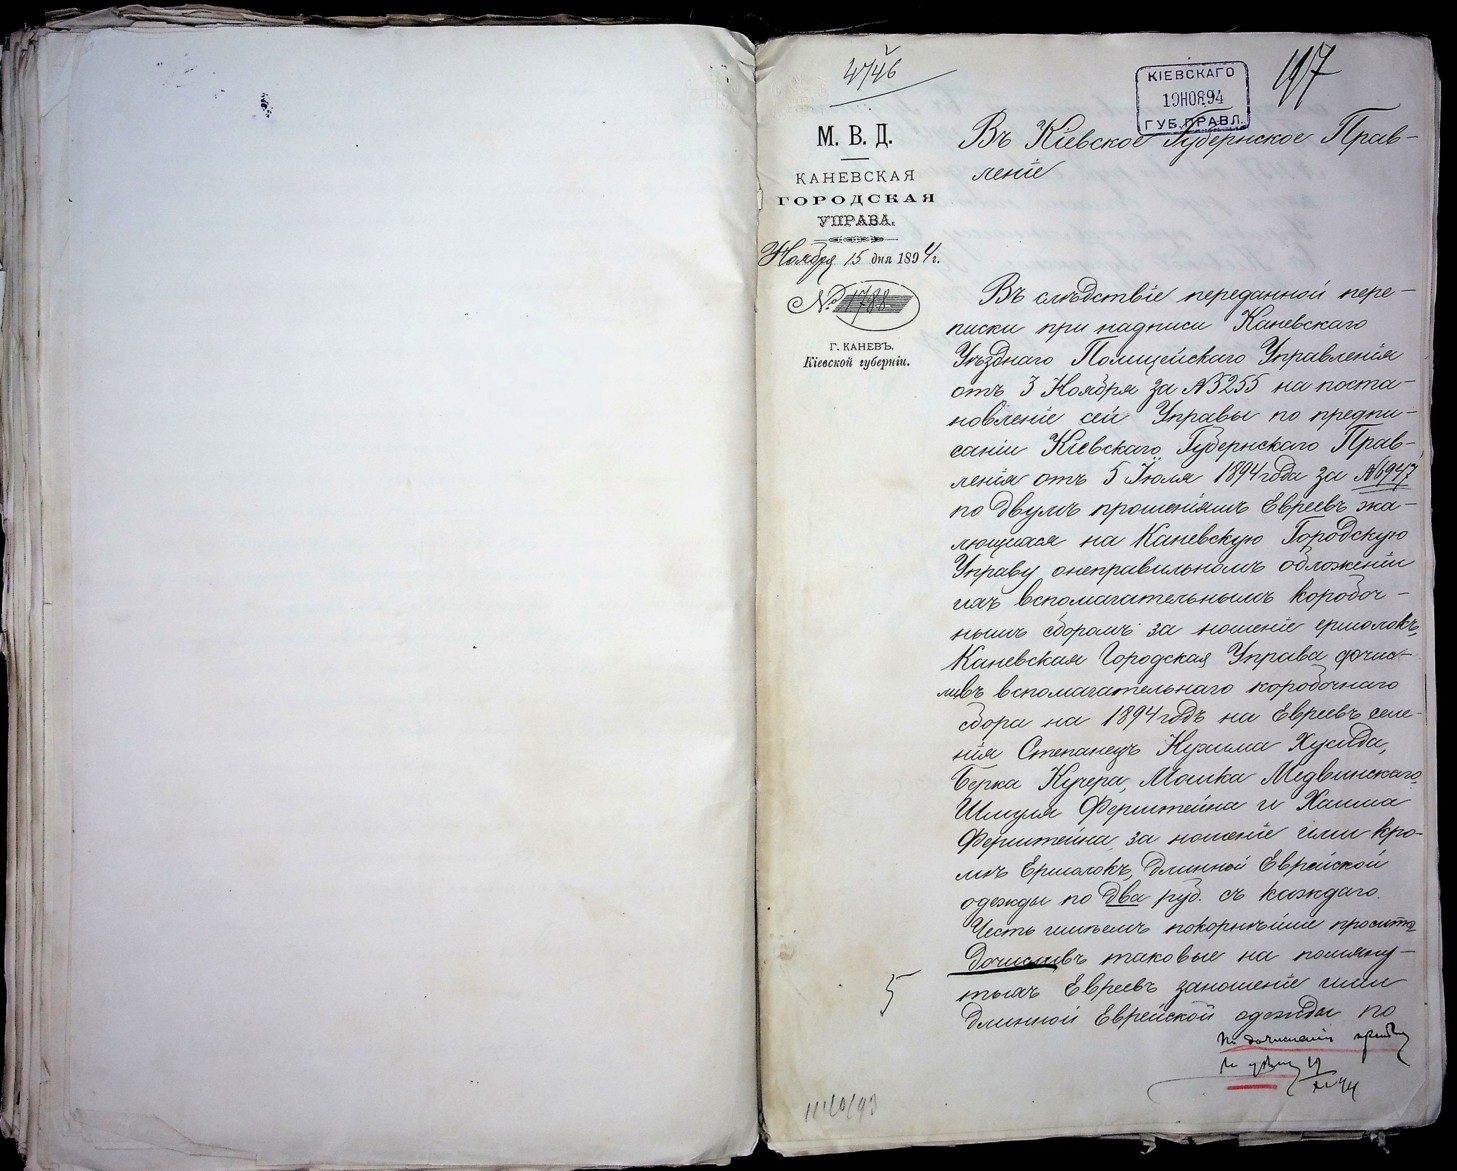 4746
197
КІЕВСКАГО
19 НОЯ 94
ГУБ. ПРАВЛ.
М. В. Д.
КАНЕВСКАЯ
ГОРОДСКАЯ
УПРАВА.
Ноября 15 дня 1894 г.
№ 1788
Г. КАНЕВЪ.
Кіевской губерніи.
Въ Кіевское Губернское Прав-
леніе
Въ слѣдствіе переданной пере-
писки при надписи Каневскаго
Уѣзднаго Полицейскаго Управленія
отъ 3 Ноября за № 5255 на поста-
новленіе сей Управы по предпи-
санію Кіевскаго Губернскаго Прав-
ленія отъ 5 Іюля 1894 года за № 6947
по двумъ прошеніямъ Евреевъ жа-
лющихся на Каневскую Городскую
Управу о неправильномъ обложеніи
ихъ вспомагательнымъ коробоч-
нымъ сборомъ за ношеніе ермолокъ,
Каневская Городская Управа дочис-
ливъ вспомагательнаго коробочнаго
сбора на 1894 годъ на Евреевъ селе-
нія Степанецъ
Берка Кучера, Мошка Медвинскаго,
Шмуля Ферштейна и Хаима
Ферштейна, за ношеніе ими кро-
мѣ Ермолокъ, длинной Еврейской
одежды по два руб. съ каждаго.
Честь имѣемъ покорнѣйше просить
дочисливъ таковые на помяну-
тыхъ Евреевъ за ношеніе ими
длинной Еврейской одежды по
5